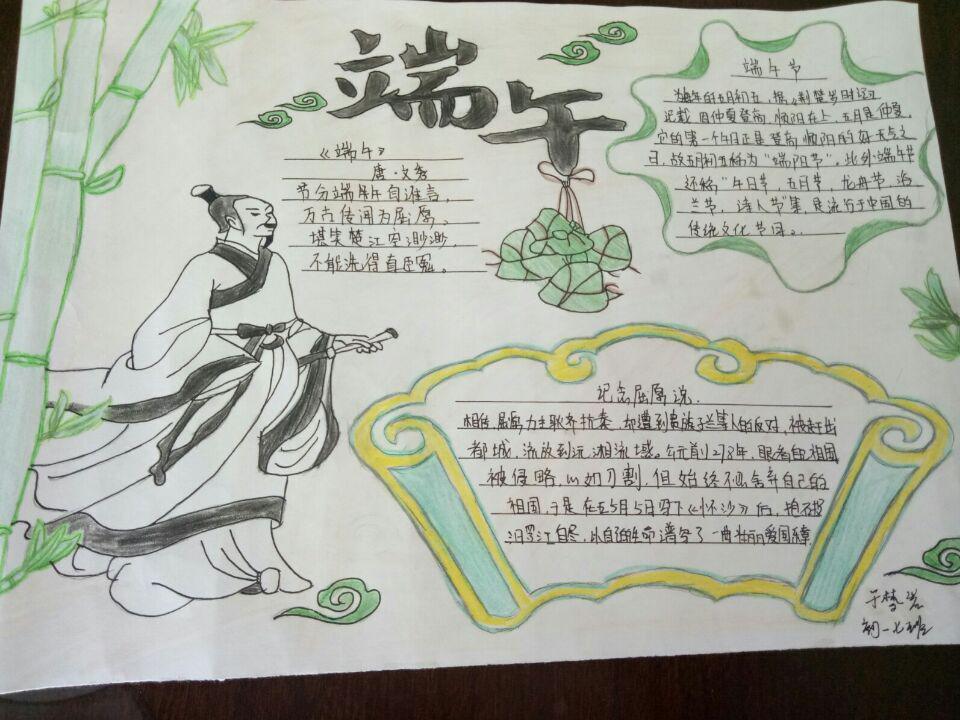 端午
《端午》
唐·文秀
节分端午自谁言，
万古传闻为屈原。
堪笑楚江空渺渺，
不能洗得直臣冤。
端午节
为每年的五月初五，据《荆楚岁时记》
记载，因仲夏登高，顺阳在上，五月是仲夏，
它的第一个午日正是登高顺阳的好天气之
日，故五月初五称为“端阳节”。此外端午节
还称“午日节，五月节，龙舟节，浴
兰节，诗人节”等，是流行于中国的
传统文化节日。
纪念屈原说
相传，屈原力主联齐抗秦，却遭到贵族子兰等人的反对，被赶出
都城，流放到沅、湘流域。公元前278年，眼看自己祖国
被侵略，心如刀割，但始终不忍舍弃自己的
祖国，于是在5月5日写下《怀沙》后，抱石投
汨罗江自尽，以自己的生命谱写了一曲壮丽爱国乐章
初一七班